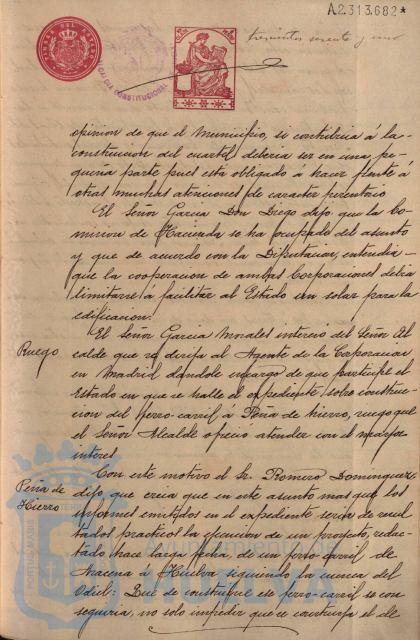 A2.313.682*
trescientos sesenta y uno
ALCALDIA CONSTITUCIONAL
opinion de que el Municipio, si contribuia á la
construccion del cuartel deberia ser en una pe-
queña parte pues está obligado á hacer frente á
otras muchas atenciones de caracter perentorio
El Señor Garcia Don Diego dijo que la Co-
mision de Hacienda se ha ocupado del asunto
y que de acuerdo con la Diputacion, entendia
que la cooperacion de ambas Corporaciones debia
limitarse á facilitar al Estado un solar para la
edificacion.
Ruego
El Señor Garcia Morales interesó del Señor Al
calde que se dirija al Agente de la Corporacion
en Madrid dandole encargo de que participe el
Estado en que se halle el expediente sobre construc-
cion del ferro-carril á Peña de hierro, ruego que
el Señor Alcalde ofreció atender con el mayor
interes
Peña de
Hierro
Con este motivo el Sr. Romero Dominguez
dijo, que creia que en este asunto mas que los
informes emitidos en el expediente seria de resul
tados practicos la ejecucion de un proyecto, redac-
tado hace larga fecha, de un ferro-carril de
Aracena á Huelva siguiendo la cuenca del
Odiel: Que de construirse ese ferro-carril se con-
seguiria, no solo impedir que se construya el de